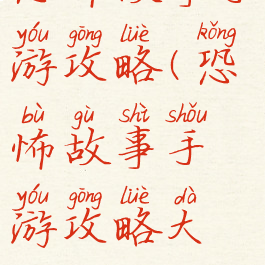 yóu gōng lüè kǒng
游攻略(恐
bù gù shì shǒu
怖故事手
yóu gōng lüè dà
游攻略大